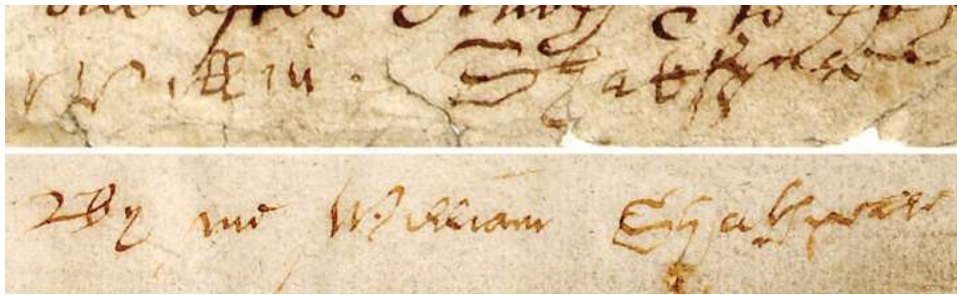 Willm Shakspere
By me William Shakspeare